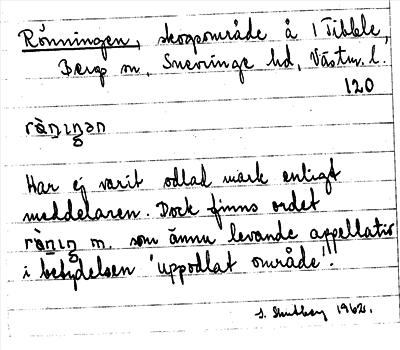 Rönningen, skogsområde å 1 Tibble,
Berg sn, Snevringe hd, Västm. l.
120
rὰ̀n̲ɪŋən
Har ej varit odlad mark enligt
meddelaren. Dock finns ordet
m. som ännu levande appellativ
i betydelsen 'uppodlat område'!
1962.